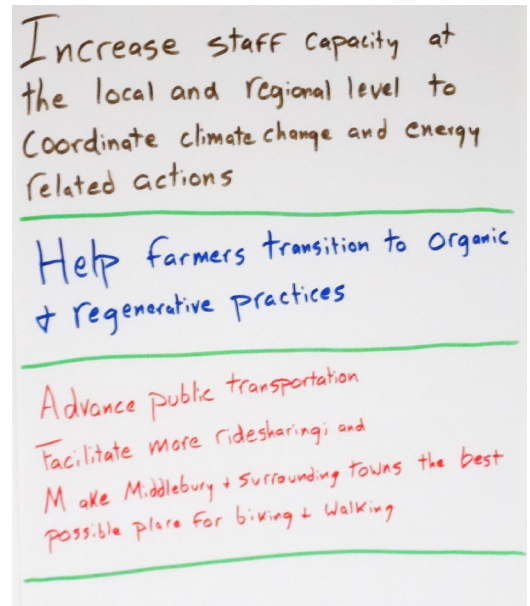 Increase staff capacity at
the local and regional level to
Coordinate climate change and energy
related actions
Help farmers transition to organic
+ regenerative practices
Advance public transportation
Facilitate more ridesharing; and
Make Middlebury + surrounding towns the best
possible place for biking + walking